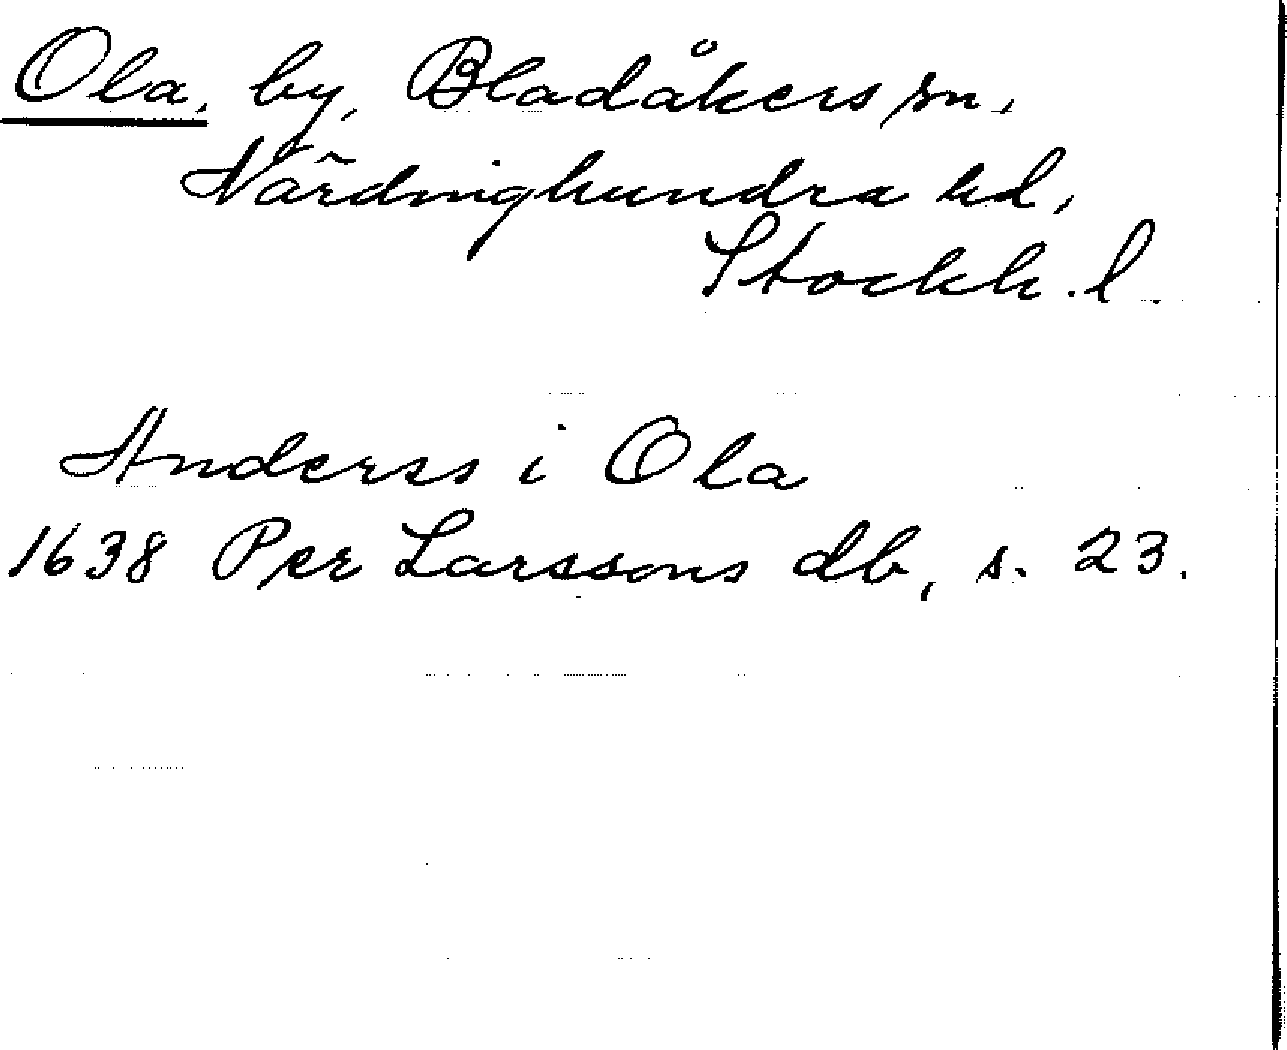 Ola, by, Bladåkers sn,
Närdinghundra hd,
Stockh. l.
Anderss i Ola
1638 Per Larssons db, s. 23.